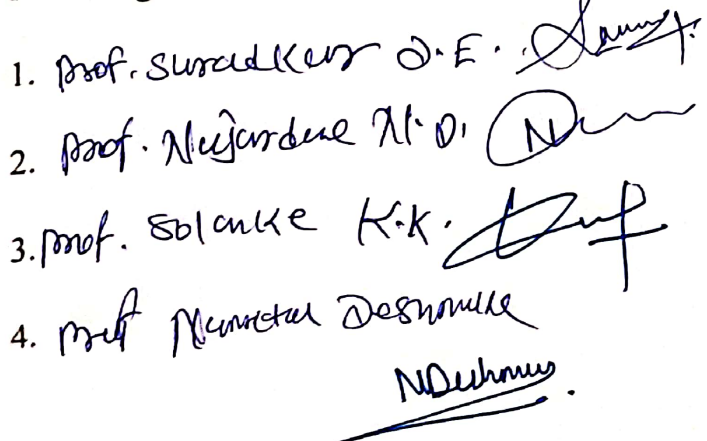 1. Prof. Suradkar D.E.
2. Prof. Nagardene N.D.
3. Prof. Solanke K.K.
4. Prof Namrata Deshmukh
NDeshmukh.